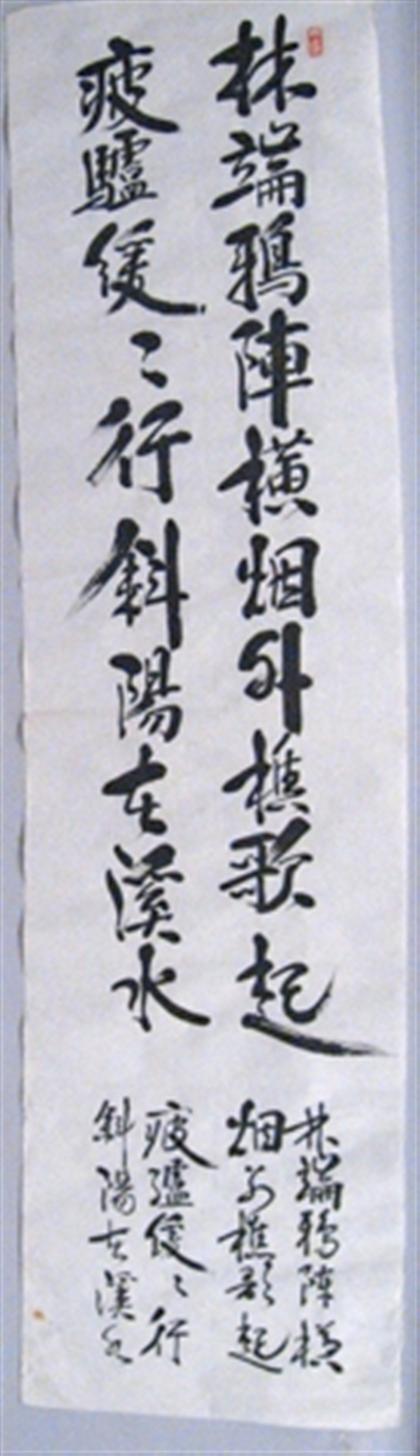 林端鴉陣橫烟外樵歌起
疲驢緩〻行斜陽在溪水
林端鴉陣橫
烟外樵歌起
疲驢緩〻行
斜陽在溪水